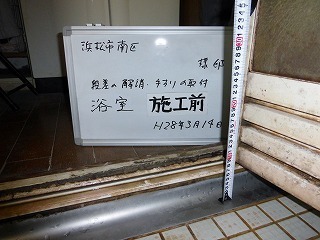 浜松市南区
様邸
段差の解消・手すりの取付
浴室 施工前
H28年3月14日